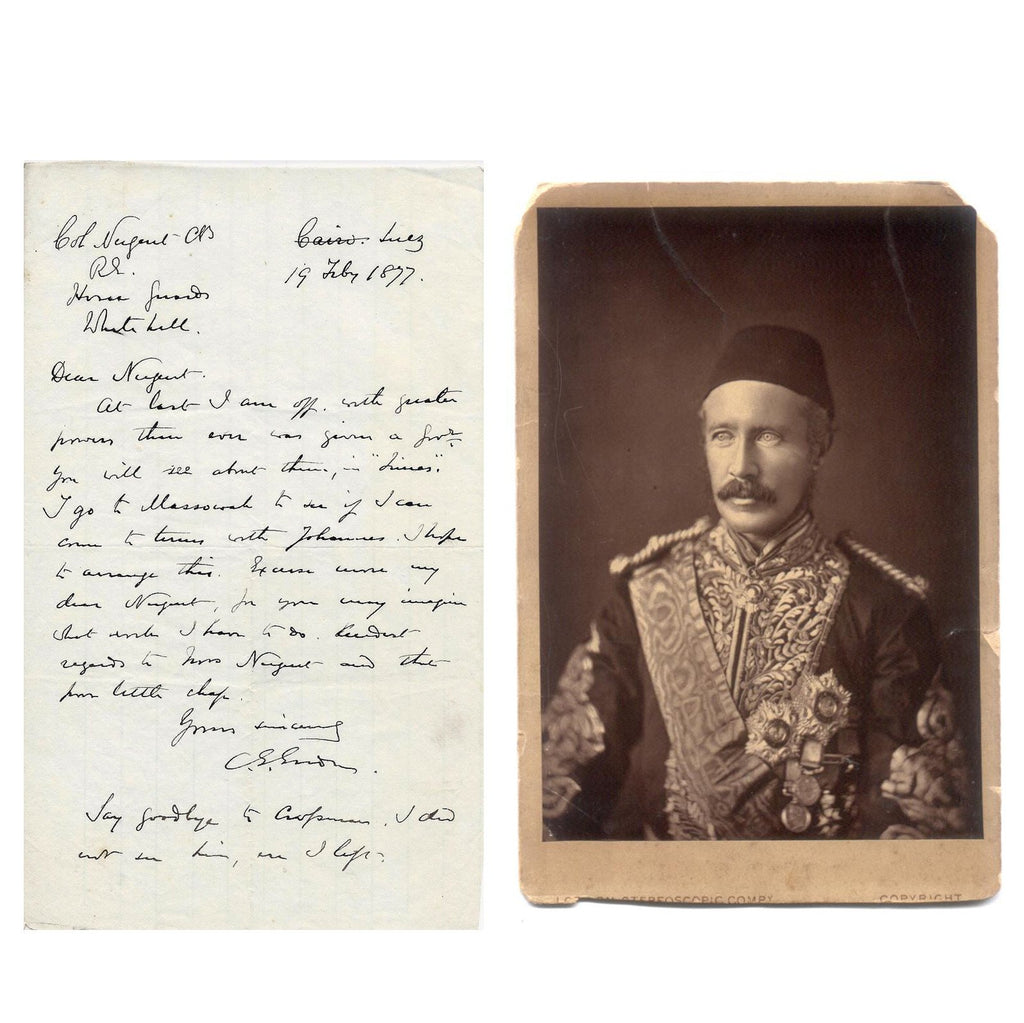 Col Nugent CB
Cairo. Suez
R.E.
19 Feby 1877.
Horse Guards
Whitehall.
Dear Nugent.
At last I am off. with greater
powers than ever was given a Govr
You will see about them, in "Times".
I go to Massowah to see if I can
come to terms with Johannes. I hope
to arrange this. Excuse more my
dear Nugent, for you may imagine
what work I have to do. Kindest
regards to Mrs Nugent and that
poor little chap.
Yours sincerely
C.E. Gordon.
Say goodbye to . I did
not see him, ere I left.
STEREOSCOPIC COMPY
COPYRIGHT